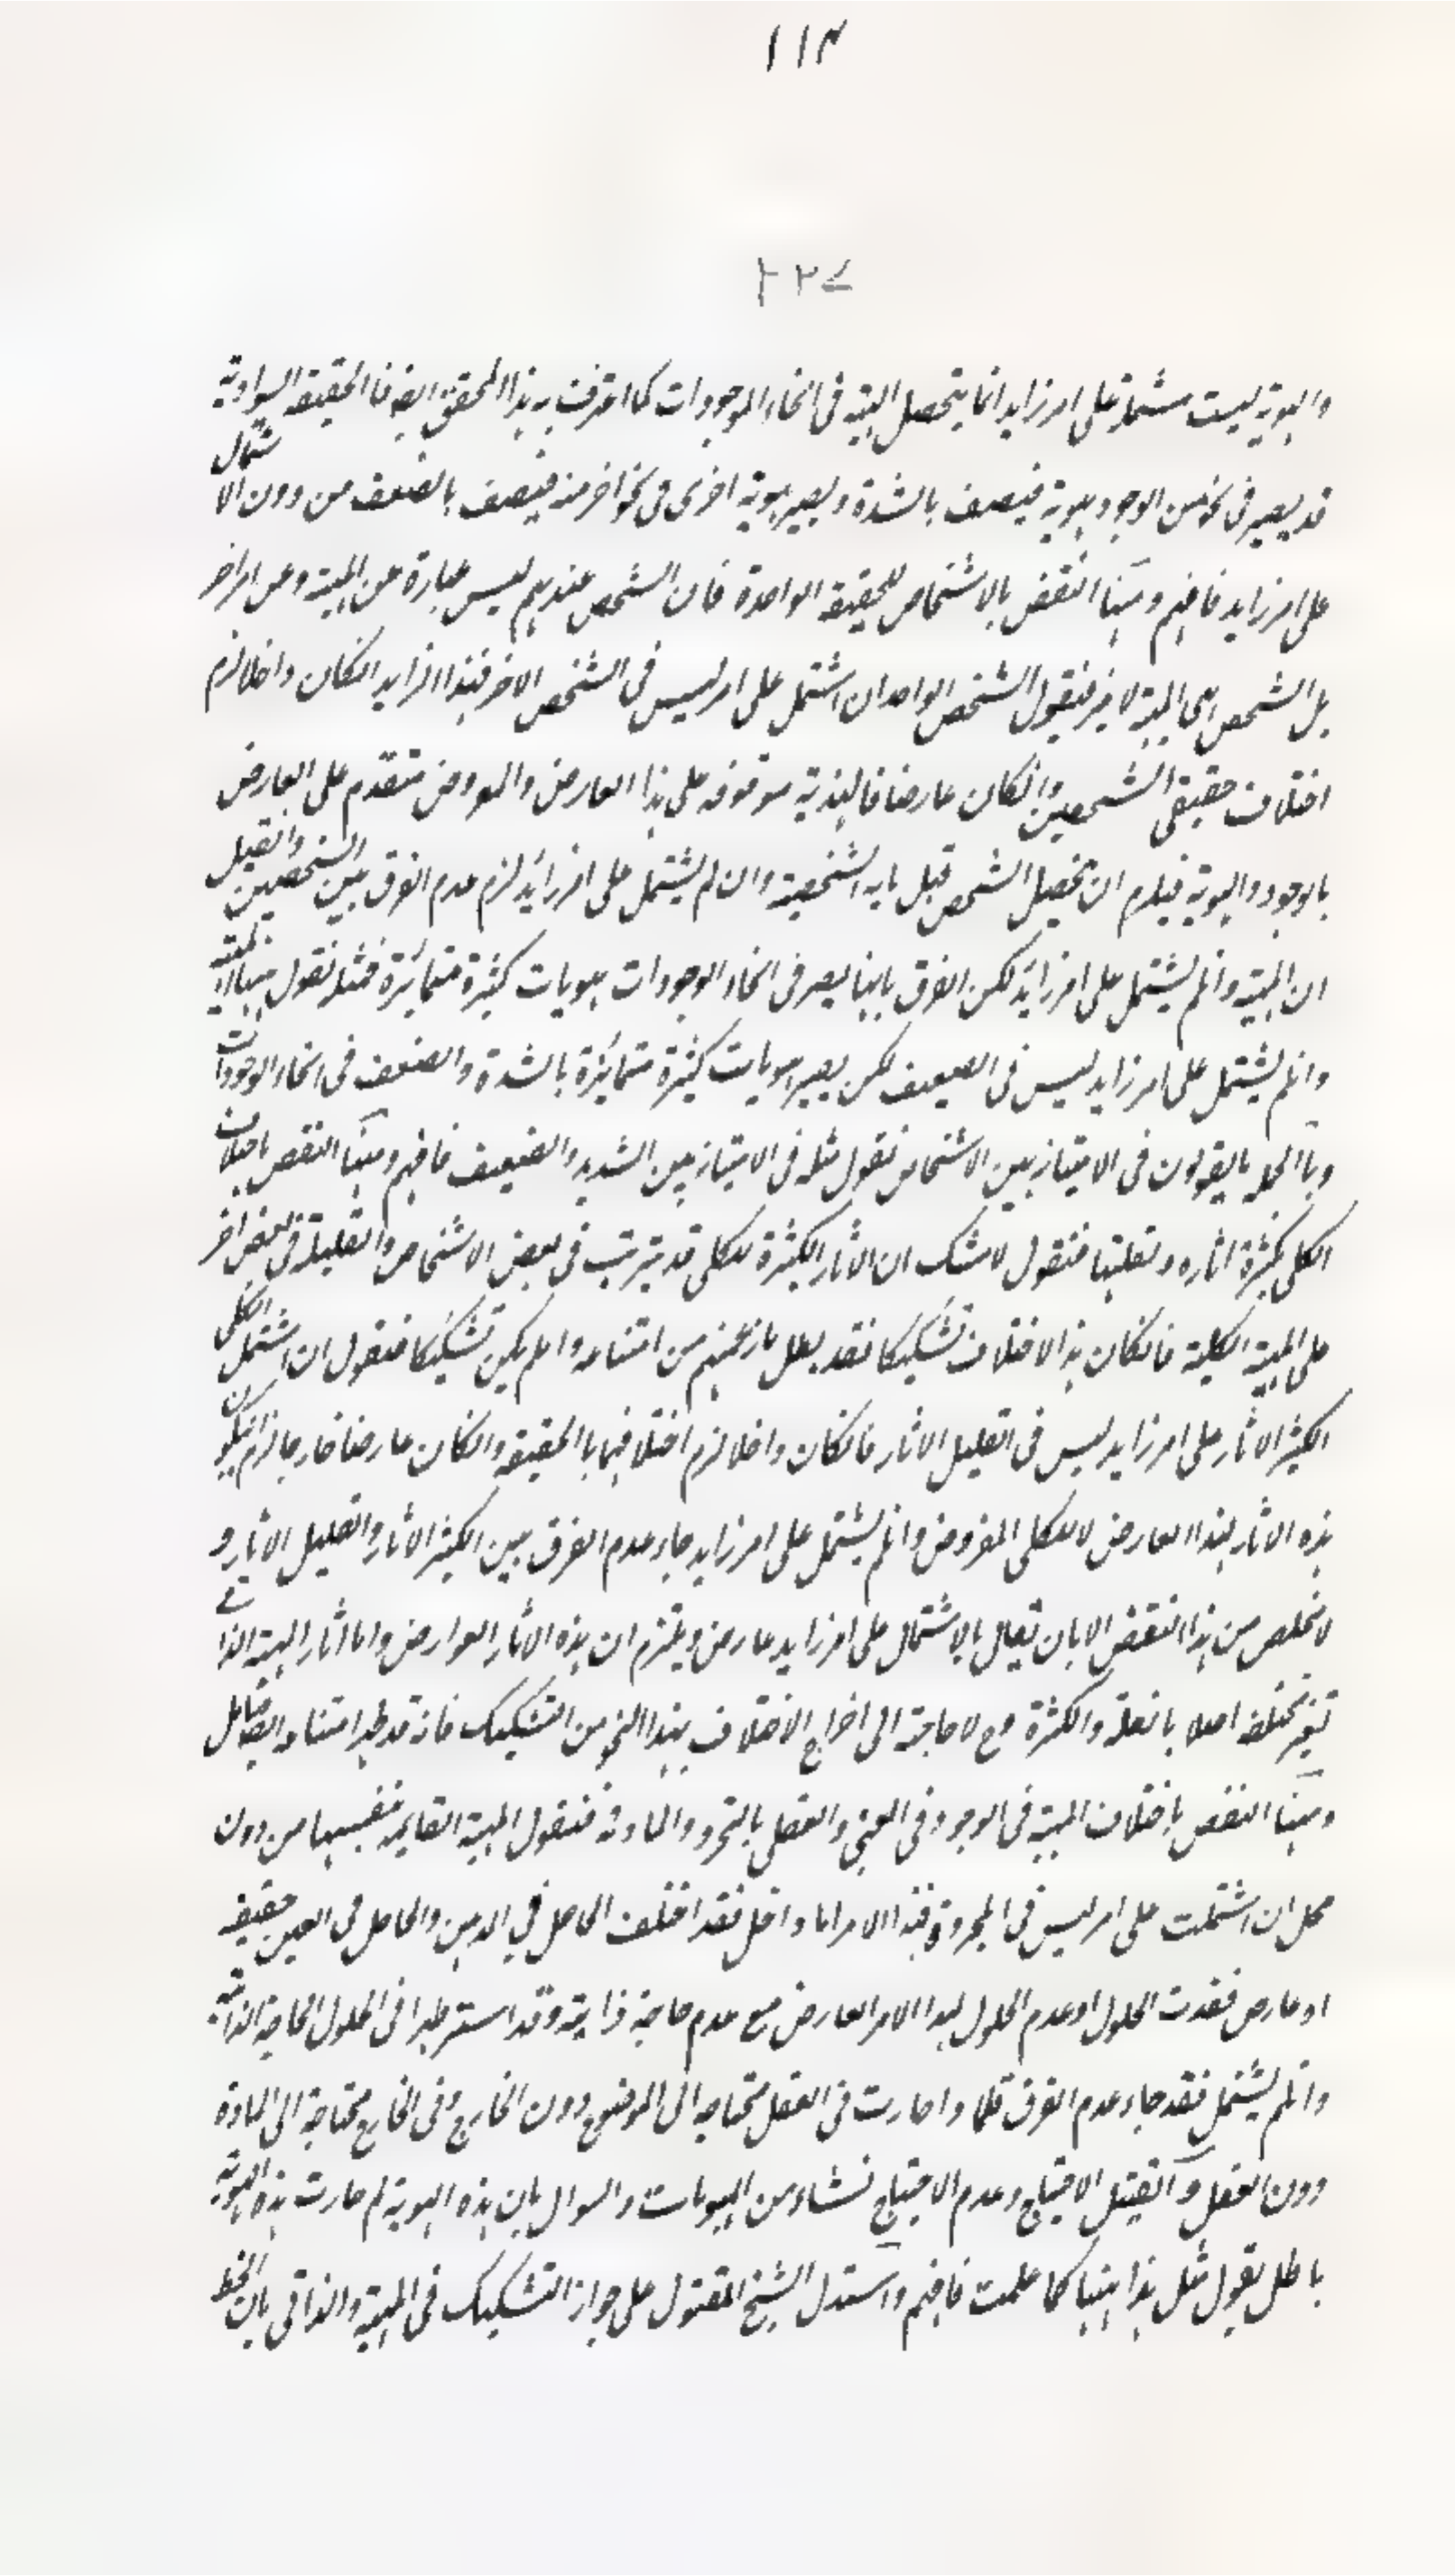 ١١٣
٢٢٧
والهوية ليست مشتملة على امر زايد انما يتحصل المهية فى انحاء الوجودات كما اعترف به هذا المحقق ايضا فالحقيقة السوادية
قد يصير فى نحو من الوجود هوية فيتصف بالشدة ويصير هوية اخرى فى نحو اخر منه فيتصف بالضعف من دون الاشتمال
على امر زايد فافهم ومنها النقض بالاشخاص للحقيقة الواحدة فان الشخص عندهم ليس عبارة عن المهية وعن امر اخر
بل الشخص هى المهية لا غير فنقول الشخص الواحد ان اشتمل على امر ليس فى الشخص الاخر فهذا الزايد انكان داخلا لزم
اختلاف حقيقى الشخصين وانكان عارضا فالهذية موقوفة على هذا العارض والمعروض متقدم على العارض
بالوجود والهوية فيلزم ان يحصل الشخص قبل مابه الشخصية وان لم يشتمل على امر زايد لزم عدم الفرق بين الشخصين وان قيل
ان المهية وانلم يشتمل على امر زايد لكن الفرق بانها يصير فى انحاء الوجودات هويات كثيرة متمايزة فمثله نقول ههنا ان المهية
وانلم يشتمل على امر زايد ليس فى الضعيف لكن يصير هويات كثيرة متمايزة بالشدة والضعف فى انحاء الوجودات
وبالجملة ما يقولون فى الامتياز بين الاشخاص نقول مثله فى الامتياز بين الشديد والضعيف فافهم ومنها النقض باختلاف
الكلى بكثرة اثاره وبقلتها فنقول لا شك ان الاثار الكثيرة للكلى قد يترتب فى بعض الاشخاص والقليلة فى بعض اخر
على المهية الكلية فانكان هذا الاختلاف تشكيكا فقد بطل ما زعمتم من امتناعه وانلم يكن تشكيكا فنقول ان اشتمل الكلى
الكثير الاثار على امر زايد ليس فى القليل الاثار فانكان داخلا لزم اختلافهما بالحقيقة وانكان عارضا خارجا لزم ان يكون
هذه الاثار لهذا العارض لا للكلى المفروض وانلم يشتمل على امر زايد جاء عدم الفرق بين الكثير الاثار والقليل الاثار و
لا مخلص من هذا النقض الا بان يقال بالاشتمال على امر زايد عارض ويلتزم ان هذه الاثار للعوارض واما اثار المهية الذاتى
فغير مختلفة اصلا بالقلة والكثرة وح لا حاجة الى اخراج الاختلاف بهذا النحو من التشكيك فانه قد ظهر امتناعه ايضا تأمل
ومنها النقض باختلاف المهية فى الوجود فى العينى والعقلى بالتجرد والمادية فنقول المهية القايمة بنفسها من دون
محل ان اشتملت على امر ليس فى المجردة فهذا الامر اما داخل فقد اختلف الحاصل فى الذهن والحاصل فى العين حقيقة
او عارض فقدت الحلول او عدم الحلول لهذا الامر العارض مع عدم حاجة ذاتية وقد استمر طهرا فى الحلول الحاجة الذاتية
وانلم يشتمل فقد جاء عدم الفرق فلما ذا صارت فى العقل محتاجة الى الموضوع دون الخارج وفى الخارج محتاجة الى المادة
دون العقل وان قيل الاحتياج وعدم الاحتياج نشاء من الهويات والسوال بان هذه الهوية لم صارت هذه الهوية
باطل يقول مثل هذا ههنا كما علمت فافهم واستدل الشيخ المقتول على جواز التشكيك فى المهية والذاتى بان الخط